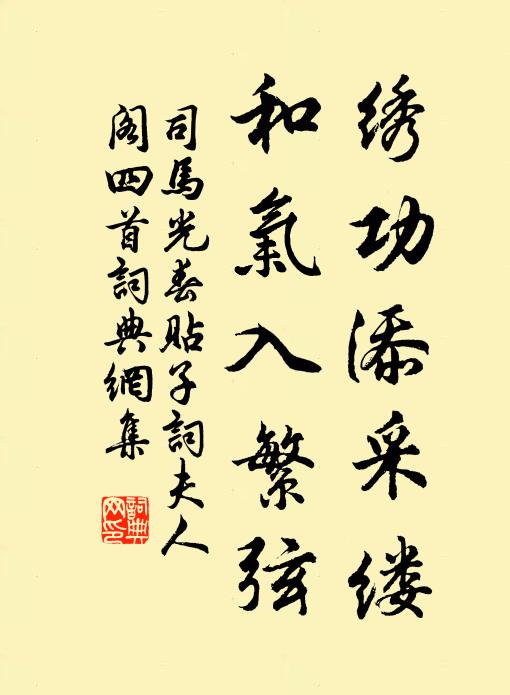 绣功添采缕
和氣入繁弦
司馬光春贴子詞夫人
阁四首詞典網集
詞典網印